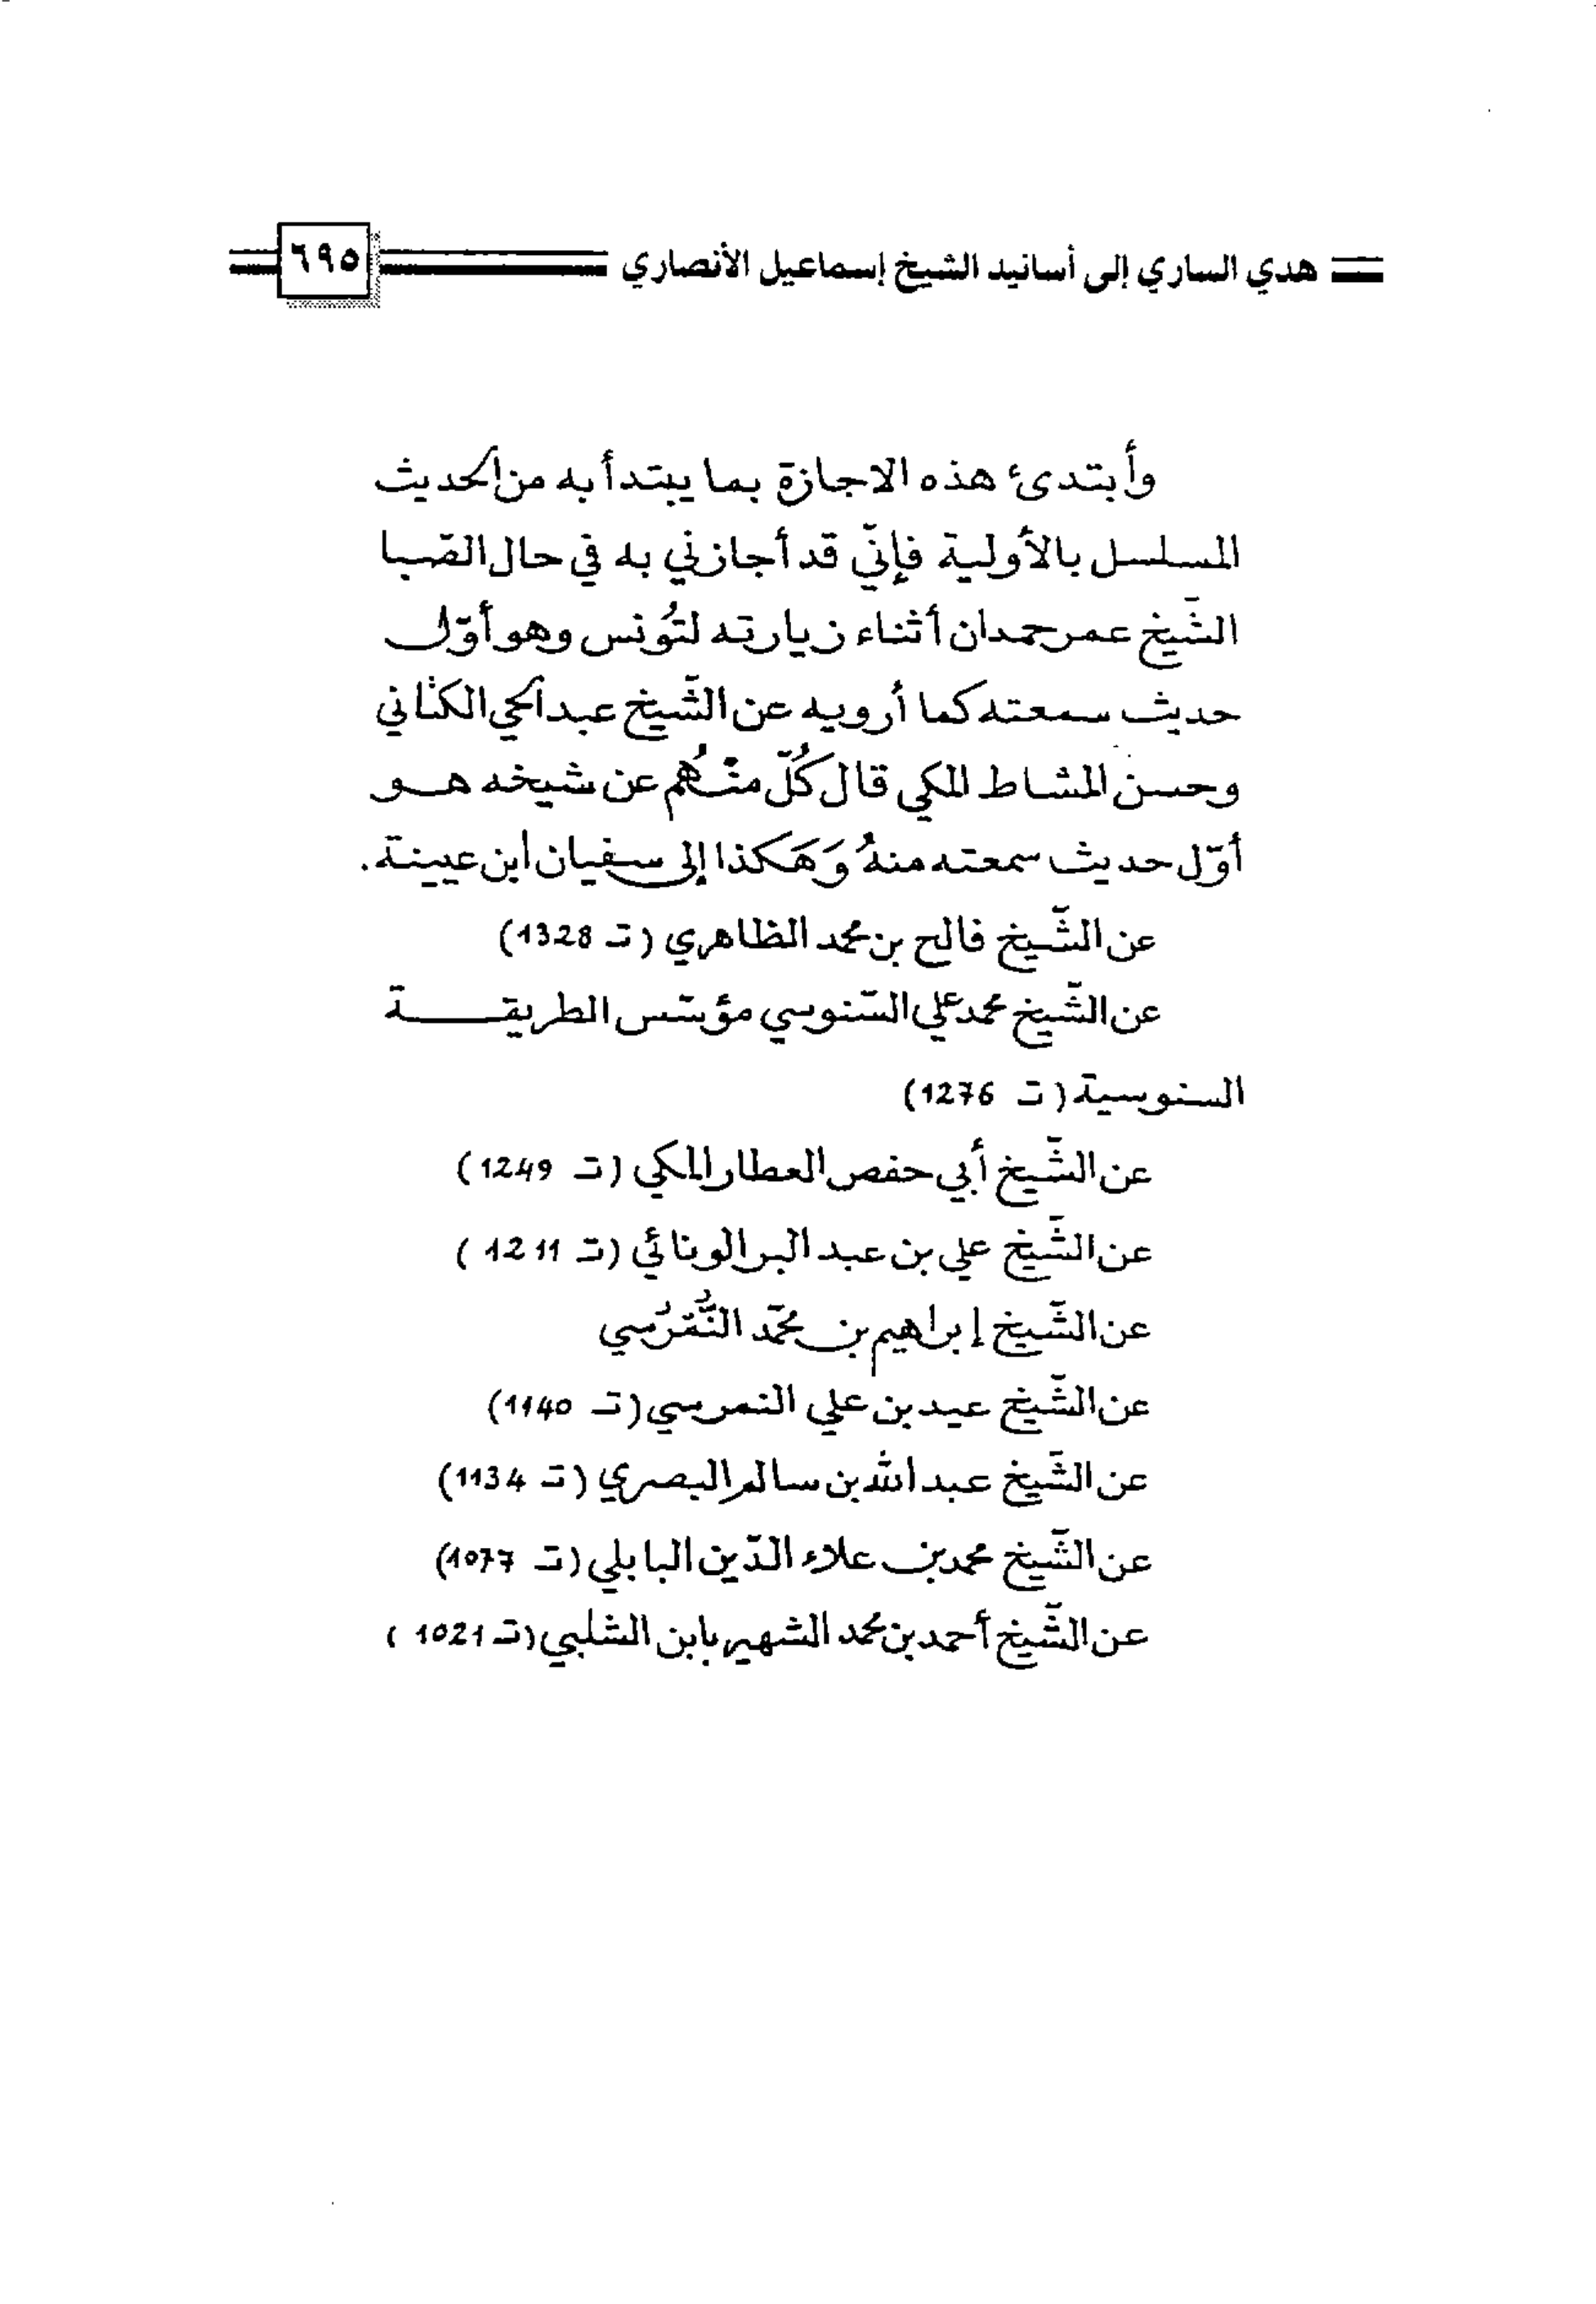 هدي الساري إلى أسانيد الشيخ إسماعيل الأنصاري ٦٩٥
وأبتدئ هذه الاجازة بما يبتدأ به من الحديث
المسلسل بالأولية فإنّي قد أجازني به في حال الصّبا
الشّيخ عمر حمدان أثناء زيارته لتُونس وهو أوّل
حديث سمعته كما أرويه عن الشّيخ عبد الحي الكتاني
وحسن المشاط المكي قال كُلّ منْهُم عن شيخه هو
أوّل حديث سمعته منهُ وَهَكذا إلى سفيان ابن عيينة.
عن الشّيخ فالح بن محمد الظاهري (تـ 1328)
عن الشّيخ محمد علي السّنوسي مؤسّس الطريقــــة
السنوسية (تـ 1276)
عن الشّيخ أبي حفص العطار المكي (تـ 1249)
عن الشّيخ علي بن عبد البر الونائي (تـ 1211)
عن الشّيخ إبراهيم بن محمّد النُّمْرُسي
عن الشّيخ عيد بن علي النمرسي (تـ 1140)
عن الشّيخ عبد الله بن سالم البصري (تـ 1134)
عن الشّيخ محمد بن علاء الدّين البابلي (تـ 1077)
عن الشّيخ أحمد بن محمد الشهير بابن الشلبي (تـ 1021)